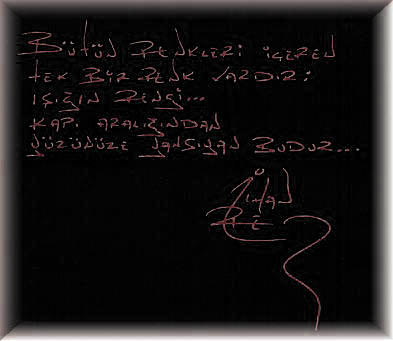 Bütün renkleri içeren
tek bir renk vardır:
ışığın rengi...
kapı aralığından
yüzünüze yansıyan budur...